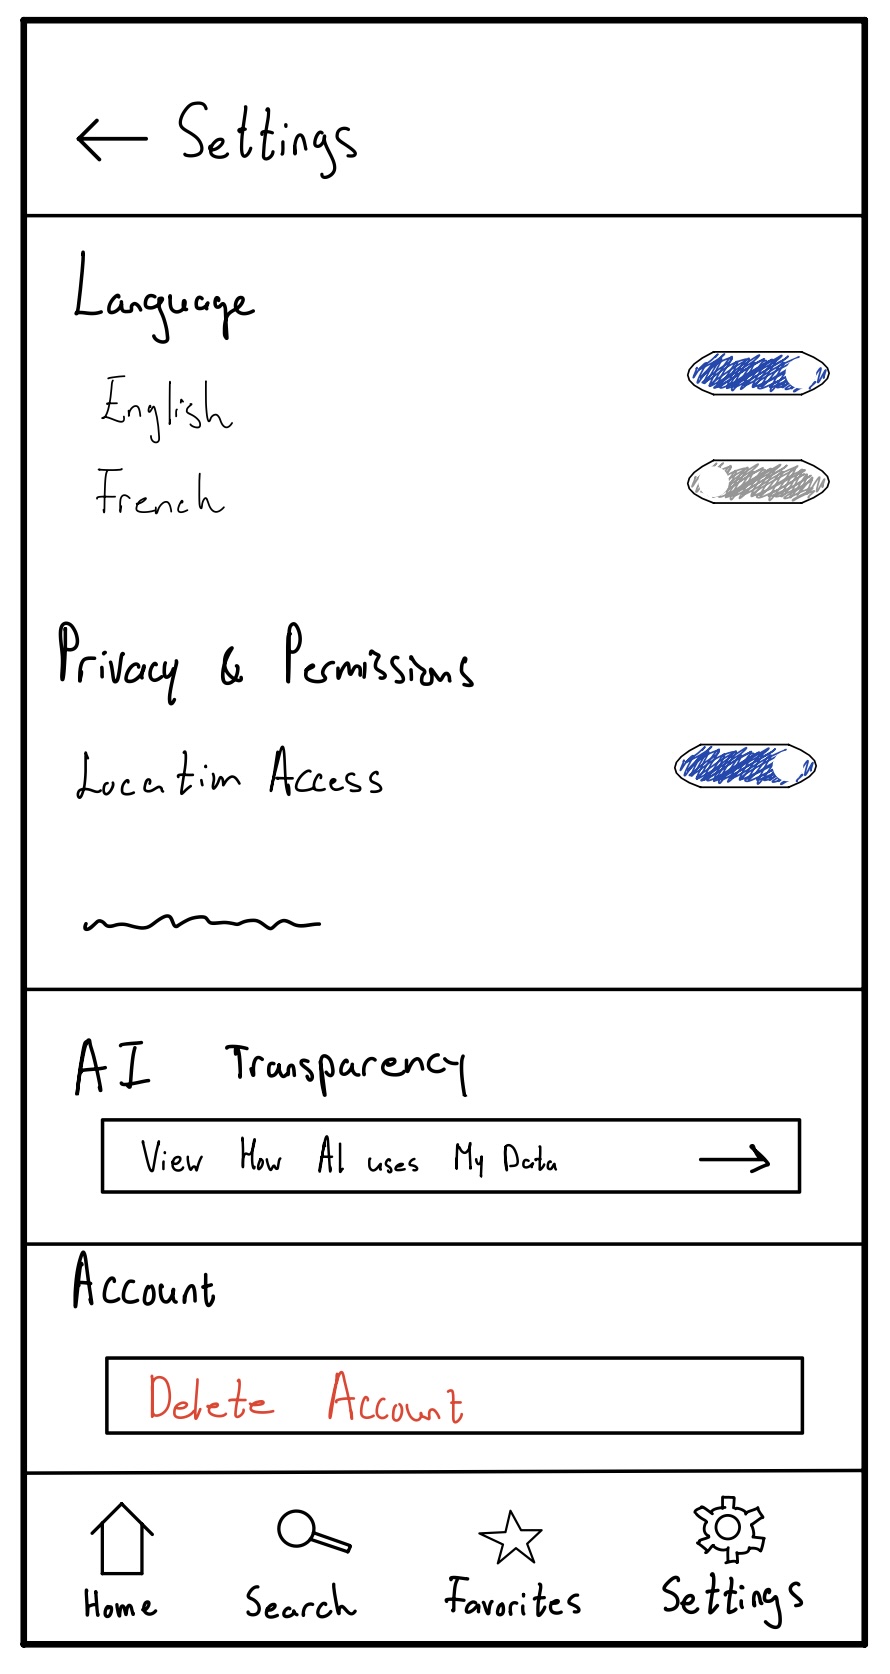 ← Settings
Language
English
French
Privacy & Permissions
Location Access
AI Transparency
View How AI uses My Data →
Account
Delete Account
Home Search Favorites Settings